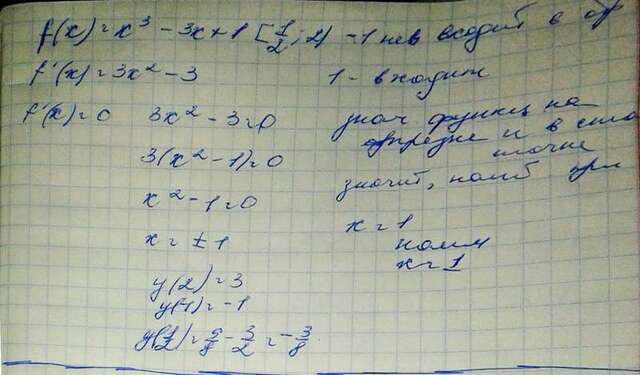 f(x) = x³ - 3x + 1 [1/2; 2] -1 не входит в
f'(x) = 3x² - 3 1 - входит
f'(x) = 0 3x² - 3 = 0 знач функц на
3(x² - 1) = 0 и в
точке
x² - 1 = 0 значит, наиб при
x = ± 1 x = 1
наим
x = 1
y(2) = 3
y(1) = -1
y(1/2) = 9/8 - 3/2 = -3/8